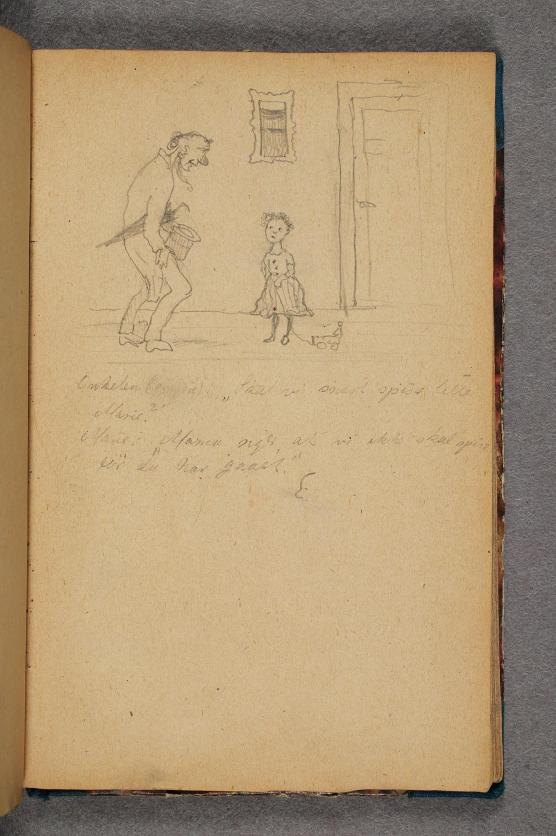 Onkelen : „Skal vi snart spise, lille
Marie?"
Marie: Mama siger, at vi ikke skal spise
før Du har gaaet."
E